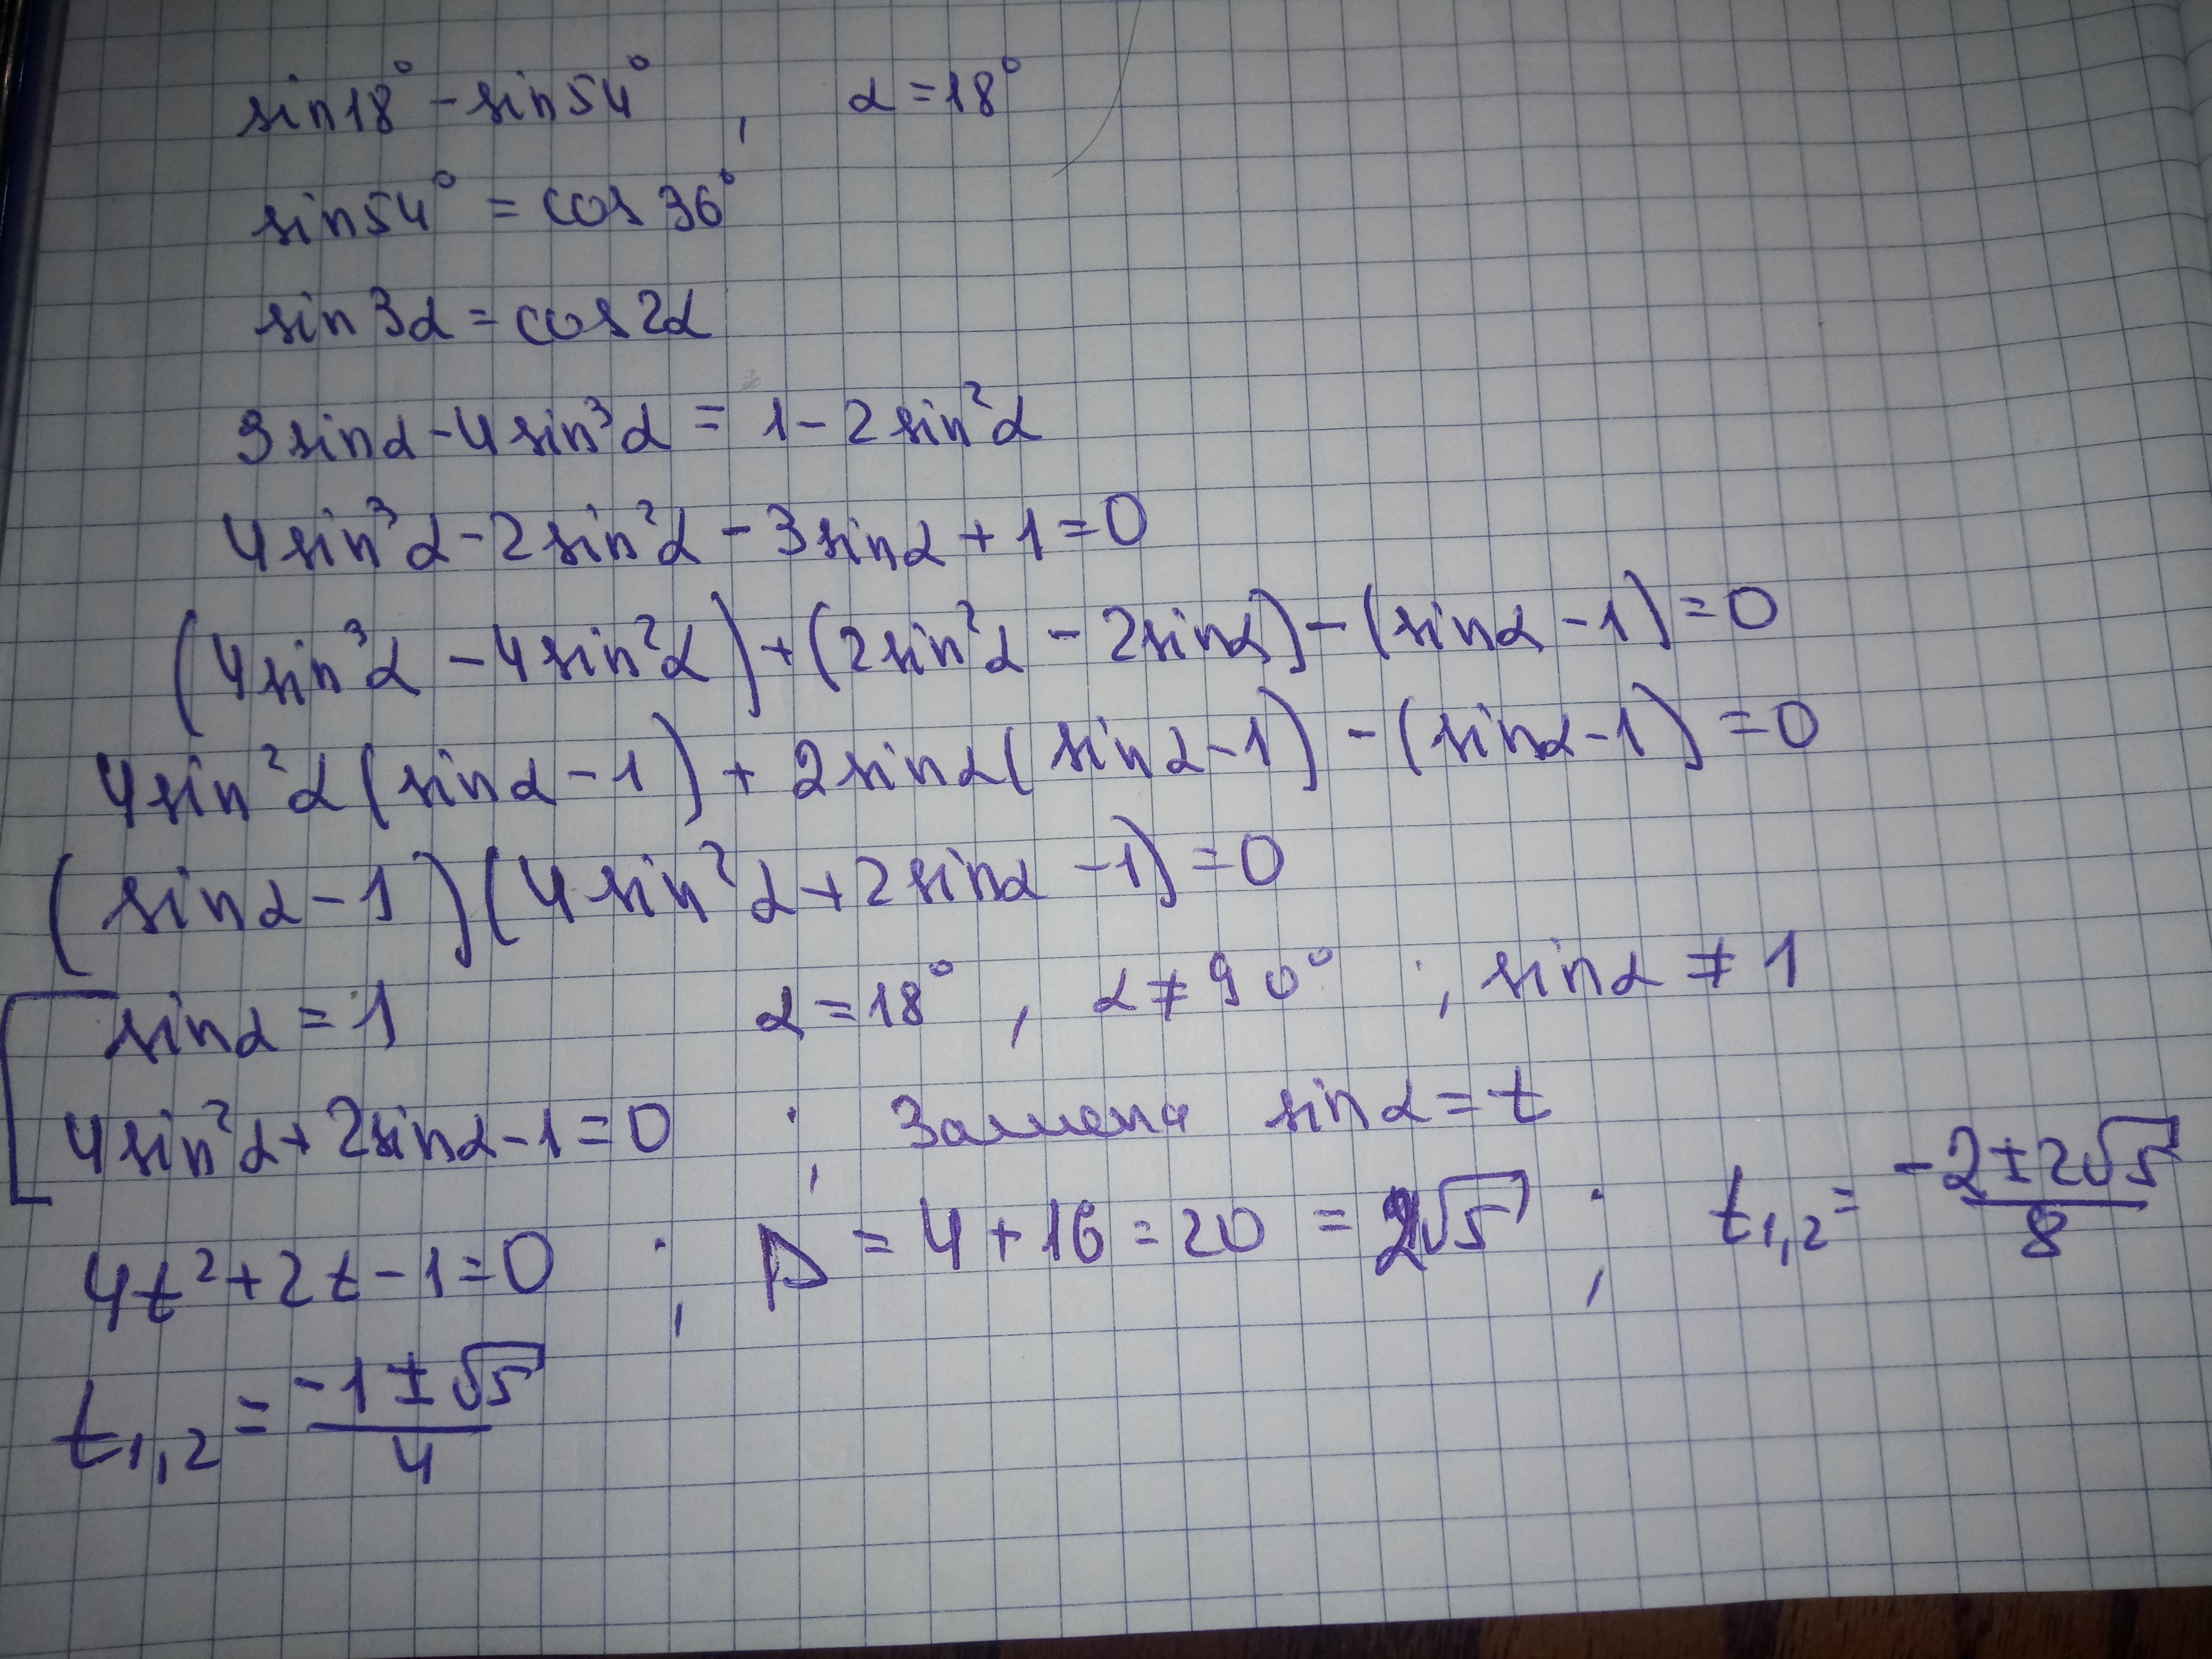 sin18° - sin54° , α = 18°
sin54° = cos36°
sin3α = cos2α
3sinα - 4sin³α = 1 - 2sin²α
4sin³α - 2sin²α - 3sinα + 1 = 0
(4sin³α - 4sin²α) + (2sin²α - 2sinα) - (sinα - 1) = 0
4sin²α(sinα - 1) + 2sinα(sinα - 1) - (sinα - 1) = 0
(sinα - 1)(4sin²α + 2sinα - 1) = 0
sinα = 1 α = 18° , α ≠ 90° ; sinα ≠ 1
4sin²α + 2sinα - 1 = 0 ; Замена sinα = t
4t² + 2t - 1 = 0 ; D = 4 + 16 = 20 = 2√5 ; t₁,₂ = (-2 ± 2√5)/8
t₁,₂ = (-1 ± √5)/4